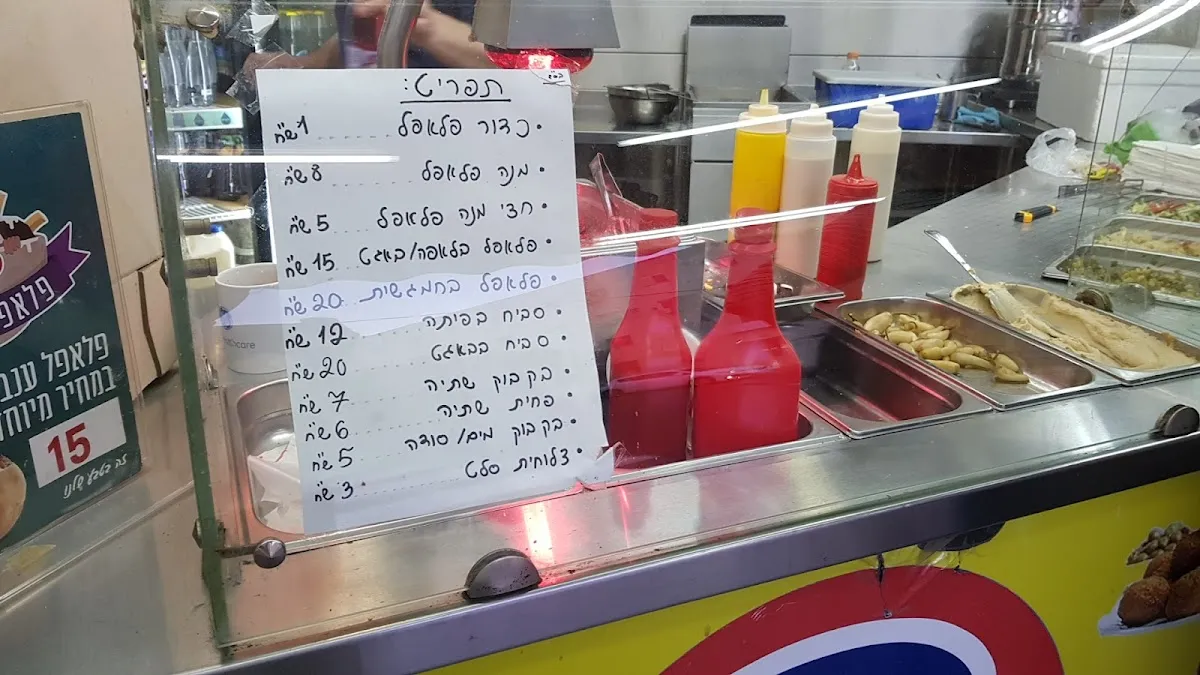 בס"ד
תפריט:
• כדור פלאפל ........ 1 ש"ח
• מנה פלאפל ........ 8 ש"ח
• חצי מנה פלאפל ........ 5 ש"ח
• פלאפל בלאפה/באגט ........ 15 ש"ח
• פלאפל בחמגשית ........ 20 ש"ח
• סביח בפיתה ........ 12 ש"ח
• סביח בבאגט ........ 20 ש"ח
• בקבוק שתיה ........ 7 ש"ח
• פחית שתיה ........ 6 ש"ח
• בקבוק מים/סודה ........ 5 ש"ח
• צלוחית סלט ........ 3 ש"ח
פלאפל
פלאפל ענב
במחיר מיוחד
15
זה בטבע שלנו
care